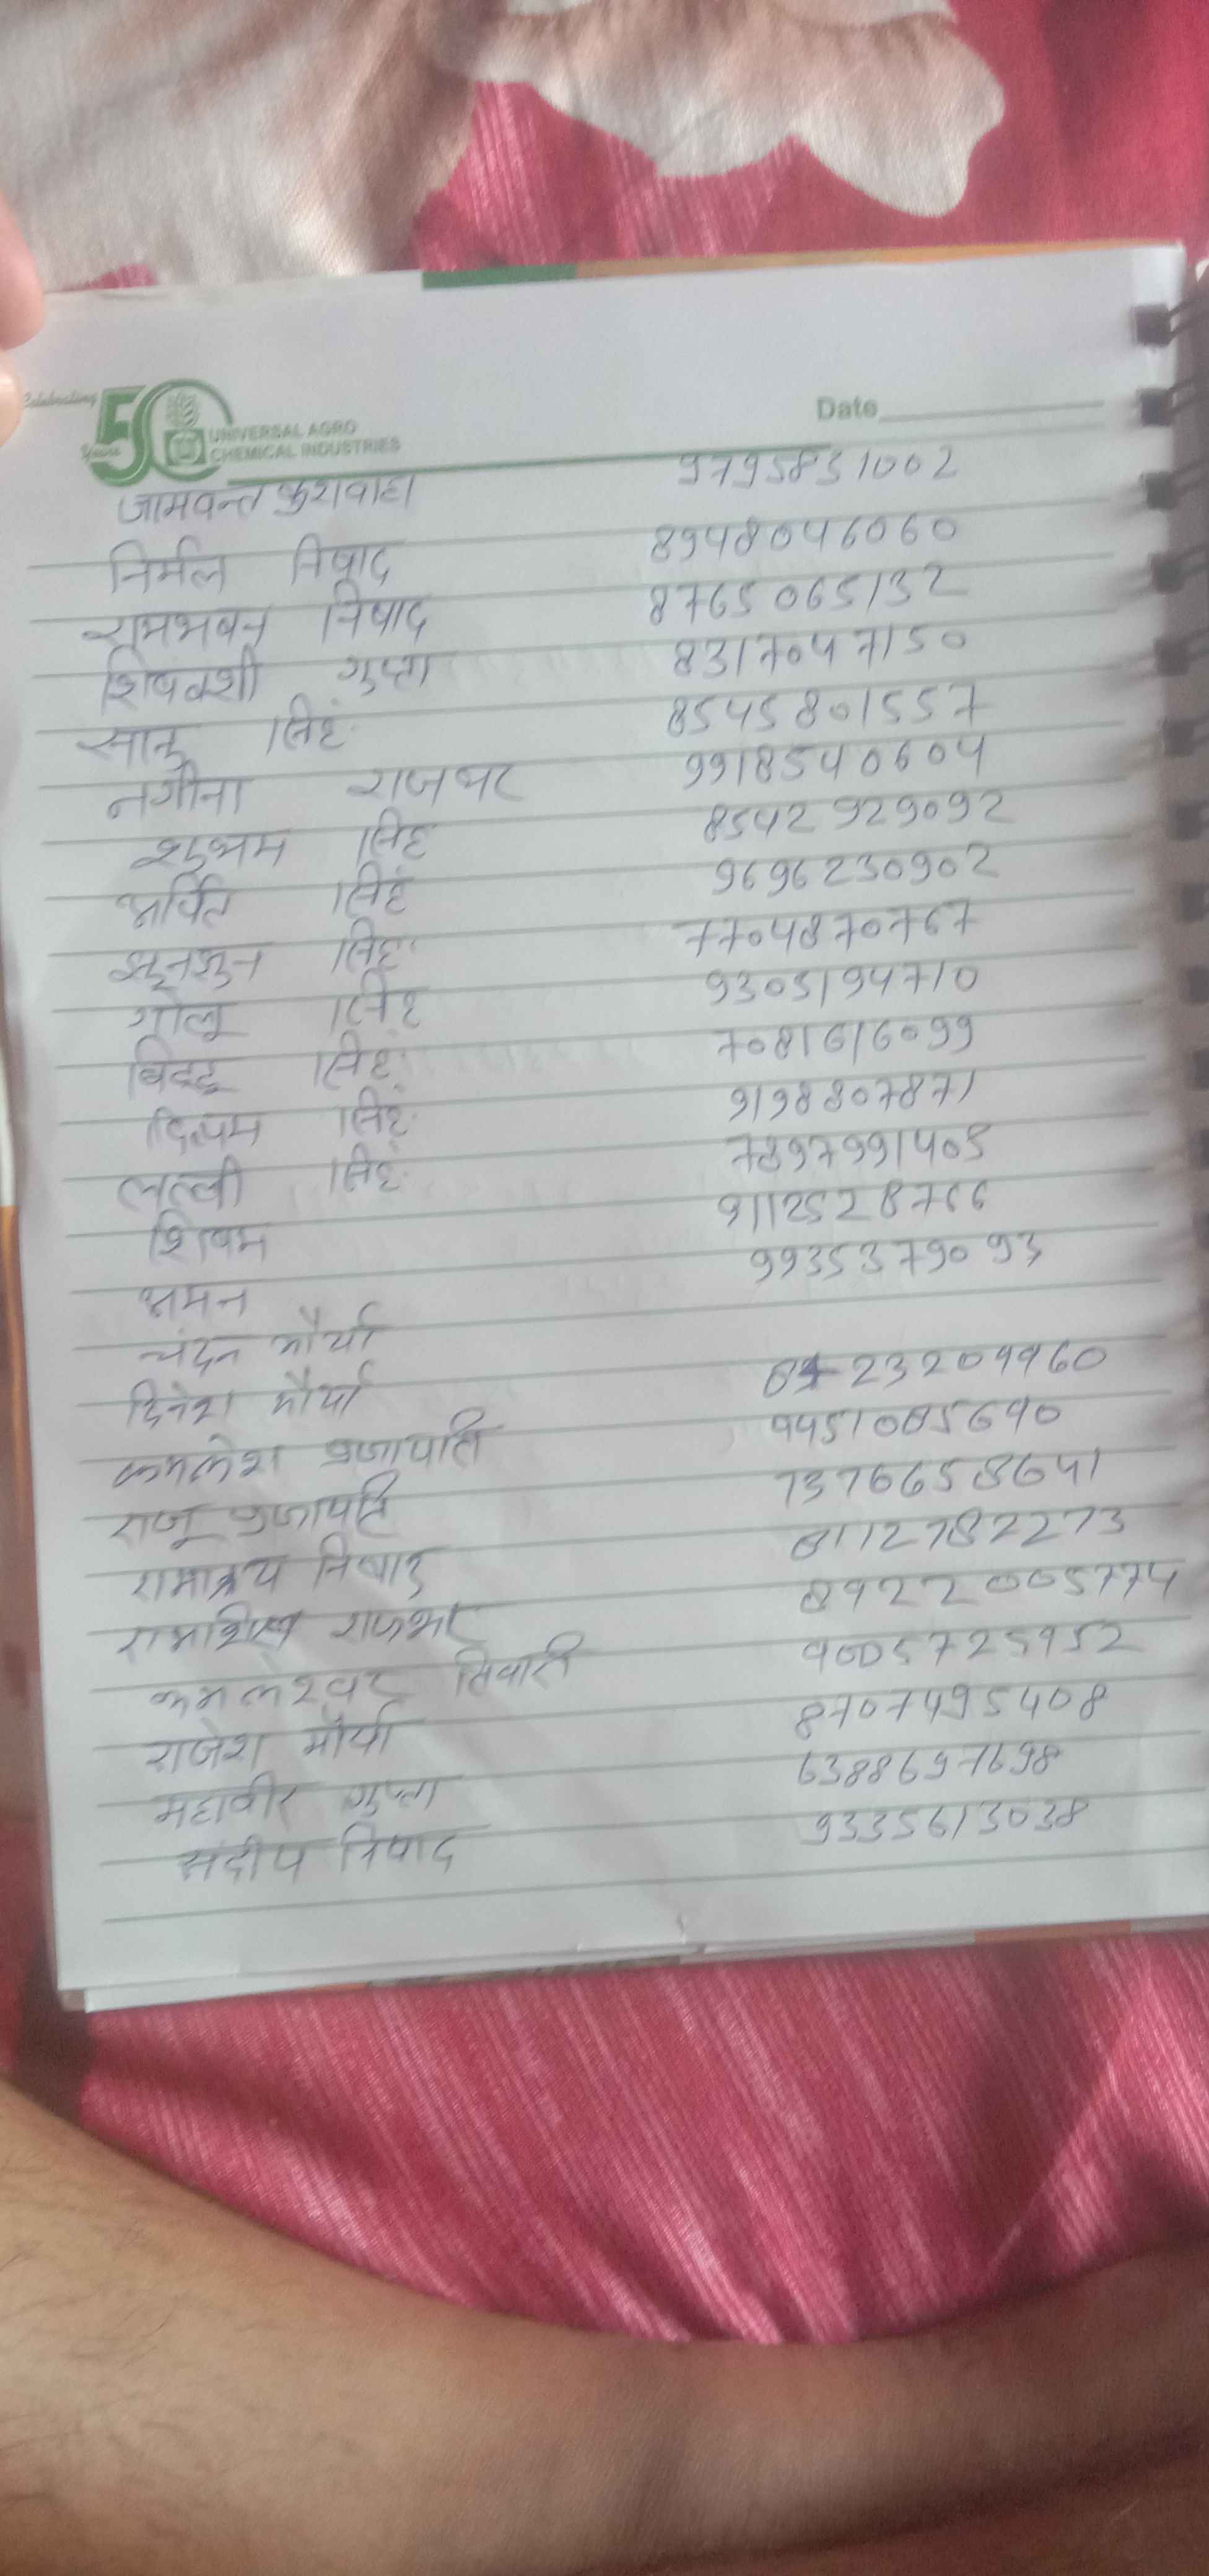 Celebrating
50 Years
UNIVERSAL AGRO
CHEMICAL INDUSTRIES
Date
जामवन्त कुशवाहा 9795851002
निर्मल निषाद 8948046060
रामभवन निषाद 8765065132
शिवंवशी गुप्ता 8317047150
सानु सिहं 8545801557
नगीना राजभर 9918540604
शुभम सिंह 8542929092
अर्पित सिहं 9696230902
झुनझुन सिहं 7704870767
गोलू सिंह 9305194710
सिहं 7081616099
सिहं 9198807871
लल्ली सिहं 7897991405
शिवम 9112528766
अमन 9935379093
चंदन मौर्या
दिनेश मौर्या 23209960
कमलेश प्रजापति 9451085690
राजू प्रजापति 7376658641
रामाश्रय निषाद 8112782273
राजभर 8922005774
कमलेश्वर तिवारी 9005725952
राजेश मौर्या 8707495408
महावीर गुप्ता 6388697698
संदीप निषाद 9335613038